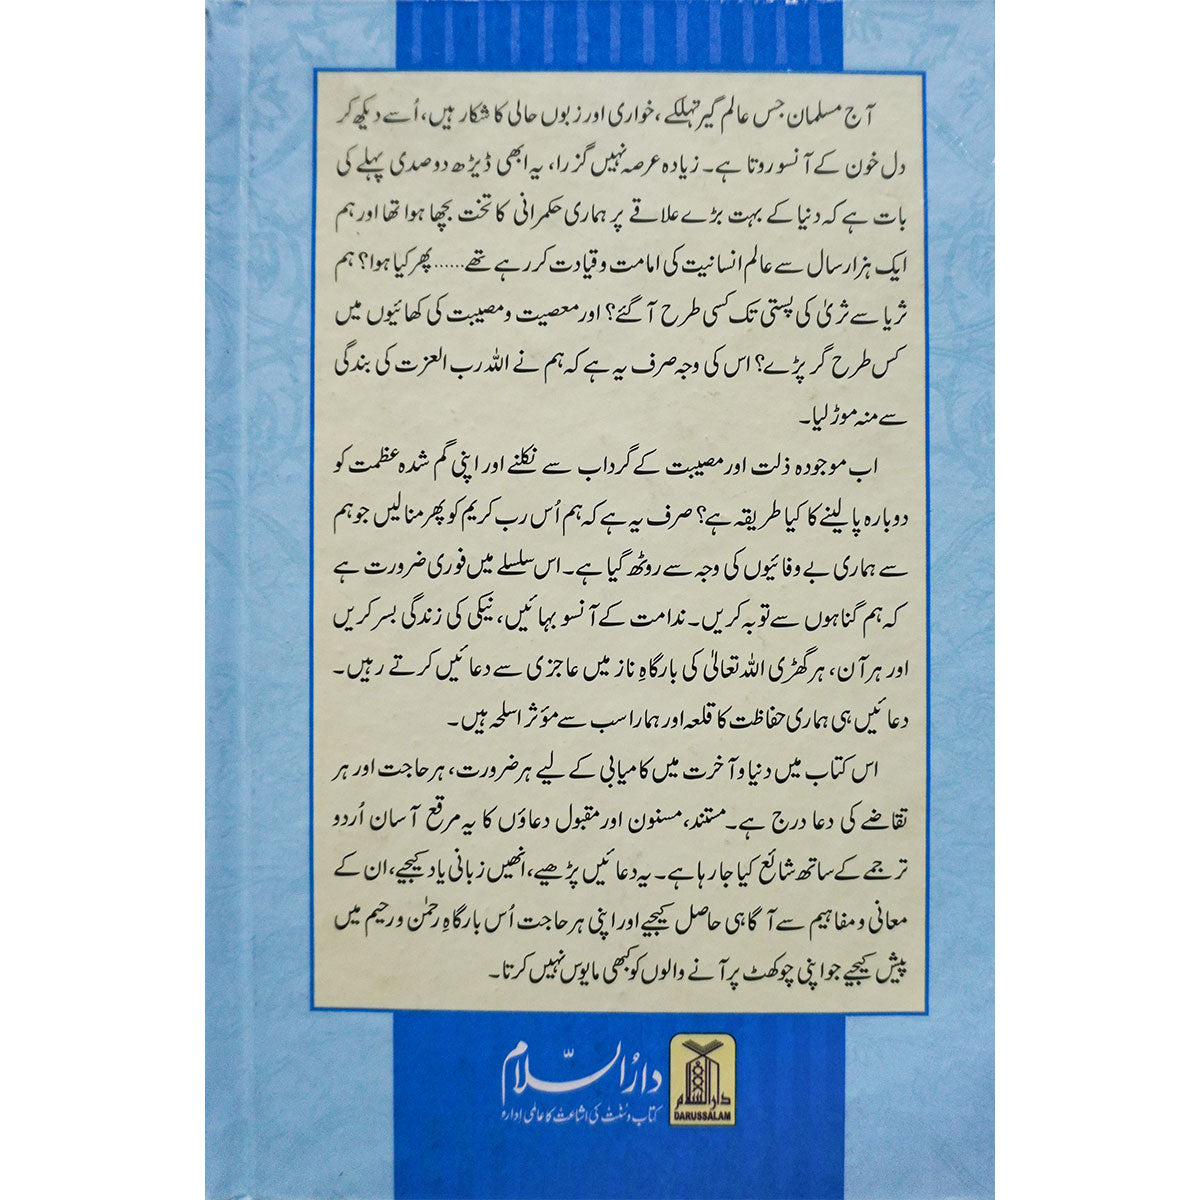 آج مسلمان جس عالم گیر تہلکے، خواری اور زبوں حالی کا شکار ہیں، اُسے دیکھ کر
دل خون کے آنسو روتا ہے۔ زیادہ عرصہ نہیں گزرا، یہ ابھی ڈیڑھ دو صدی پہلے کی
بات ہے کہ دنیا کے بہت بڑے علاقے پر ہماری حکمرانی کا تخت بچھا ہوا تھا اور ہم
ایک ہزار سال سے عالم انسانیت کی امامت و قیادت کر رہے تھے...... پھر کیا ہوا؟ ہم
ثریا سے ثریٰ کی پستی تک کسی طرح آ گئے؟ اور معصیت و مصیبت کی کھائیوں میں
کس طرح گر پڑے؟ اس کی وجہ صرف یہ ہے کہ ہم نے اللہ رب العزت کی بندگی
سے منہ موڑ لیا۔
اب موجودہ ذلت اور مصیبت کے گرداب سے نکلنے اور اپنی گم شدہ عظمت کو
دوبارہ پا لینے کا کیا طریقہ ہے؟ صرف یہ ہے کہ ہم اُس رب کریم کو پھر منا لیں جو ہم
سے ہماری بے وفائیوں کی وجہ سے روٹھ گیا ہے۔ اس سلسلے میں فوری ضرورت ہے
کہ ہم گناہوں سے توبہ کریں۔ ندامت کے آنسو بہائیں، نیکی کی زندگی بسر کریں
اور ہر آن، ہر گھڑی اللہ تعالیٰ کی بارگاہِ ناز میں عاجزی سے دعائیں کرتے رہیں۔
دعائیں ہی ہماری حفاظت کا قلعہ اور ہمارا سب سے مؤثر اسلحہ ہیں۔
اس کتاب میں دنیا و آخرت میں کامیابی کے لیے ہر ضرورت، ہر حاجت اور ہر
تقاضے کی دعا درج ہے۔ مستند، مسنون اور مقبول دعاؤں کا یہ مرقع آسان اُردو
ترجمے کے ساتھ شائع کیا جا رہا ہے۔ یہ دعائیں پڑھیے، انھیں زبانی یاد کیجیے، ان کے
معانی و مفاہیم سے آگاہی حاصل کیجیے اور اپنی ہر حاجت اُس بارگاہِ رحمٰن و رحیم میں
پیش کیجیے جو اپنی چوکھٹ پر آنے والوں کو کبھی مایوس نہیں کرتا۔
دارُالسّلام
کتاب و سُنّت کی اشاعت کا عالمی اِدارہ
دارالسلام
DARUSSALAM